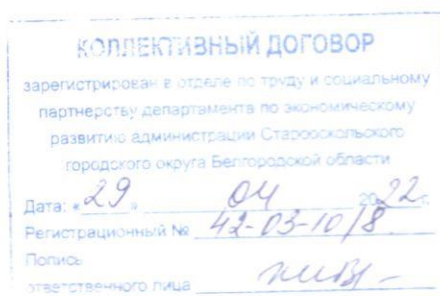 КОЛЛЕКТИВНЫЙ ДОГОВОР
зарегистрирован в отделе по труду и социальному
партнерству департамента по экономическому
развитию администрации Старооскольского
городского округа Белгородской области
Дата: «29» 04 2022г.
Регистрационный № 42-03-10/8
Попись
ответственного лица